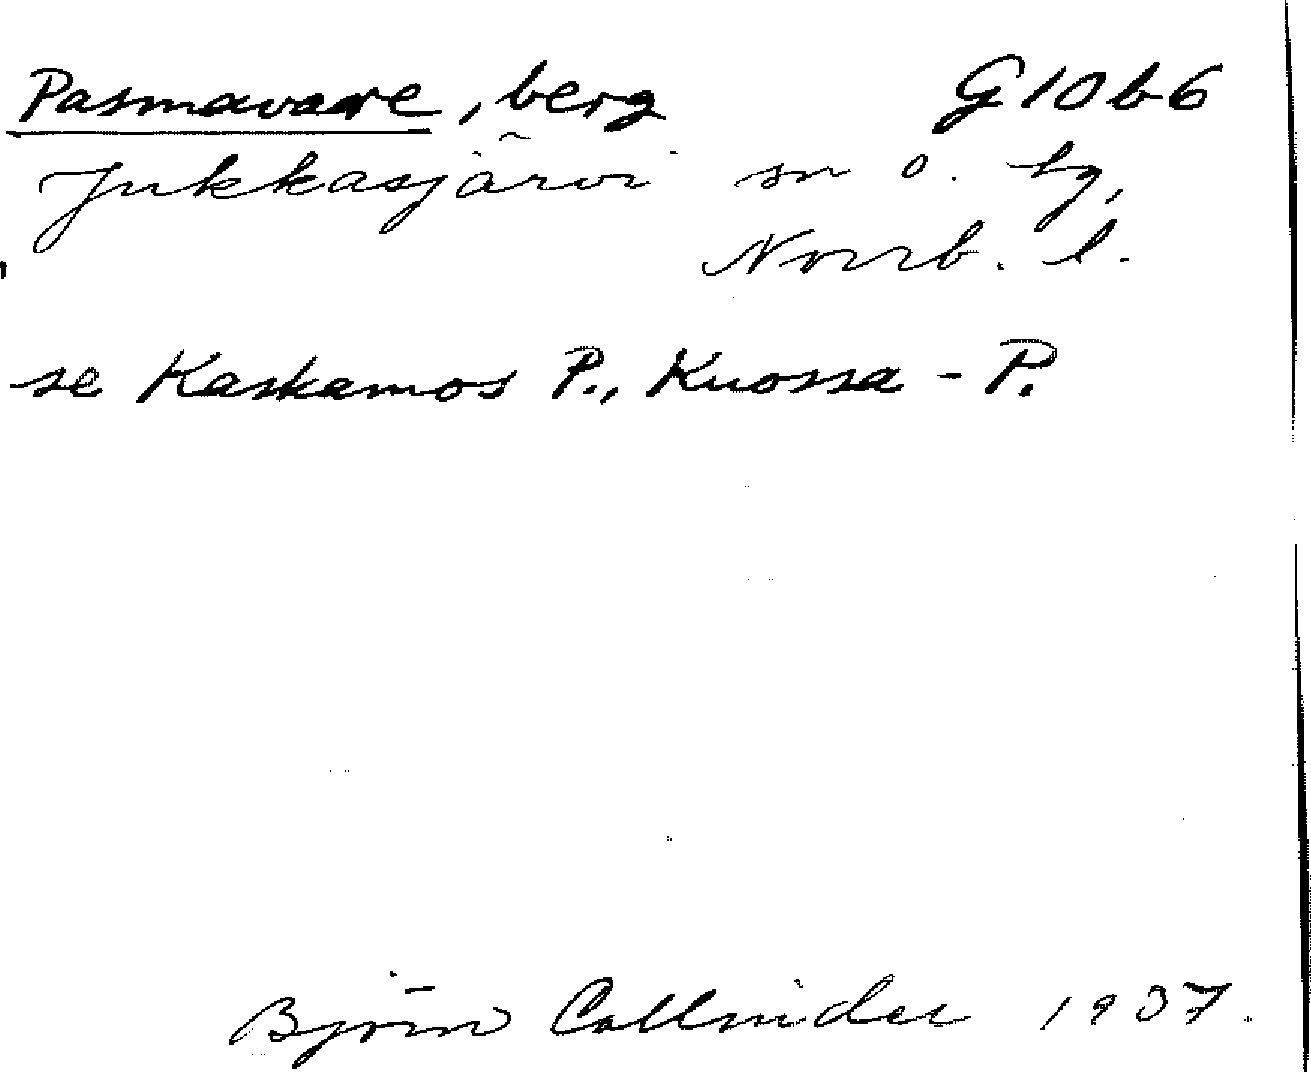 Pasmavare, berg G10b6
Jukkasjärvi sn o. tg,
Norrb. l.
se Kaskamos P., Kuossa-P.
Björn Collinder 1937.